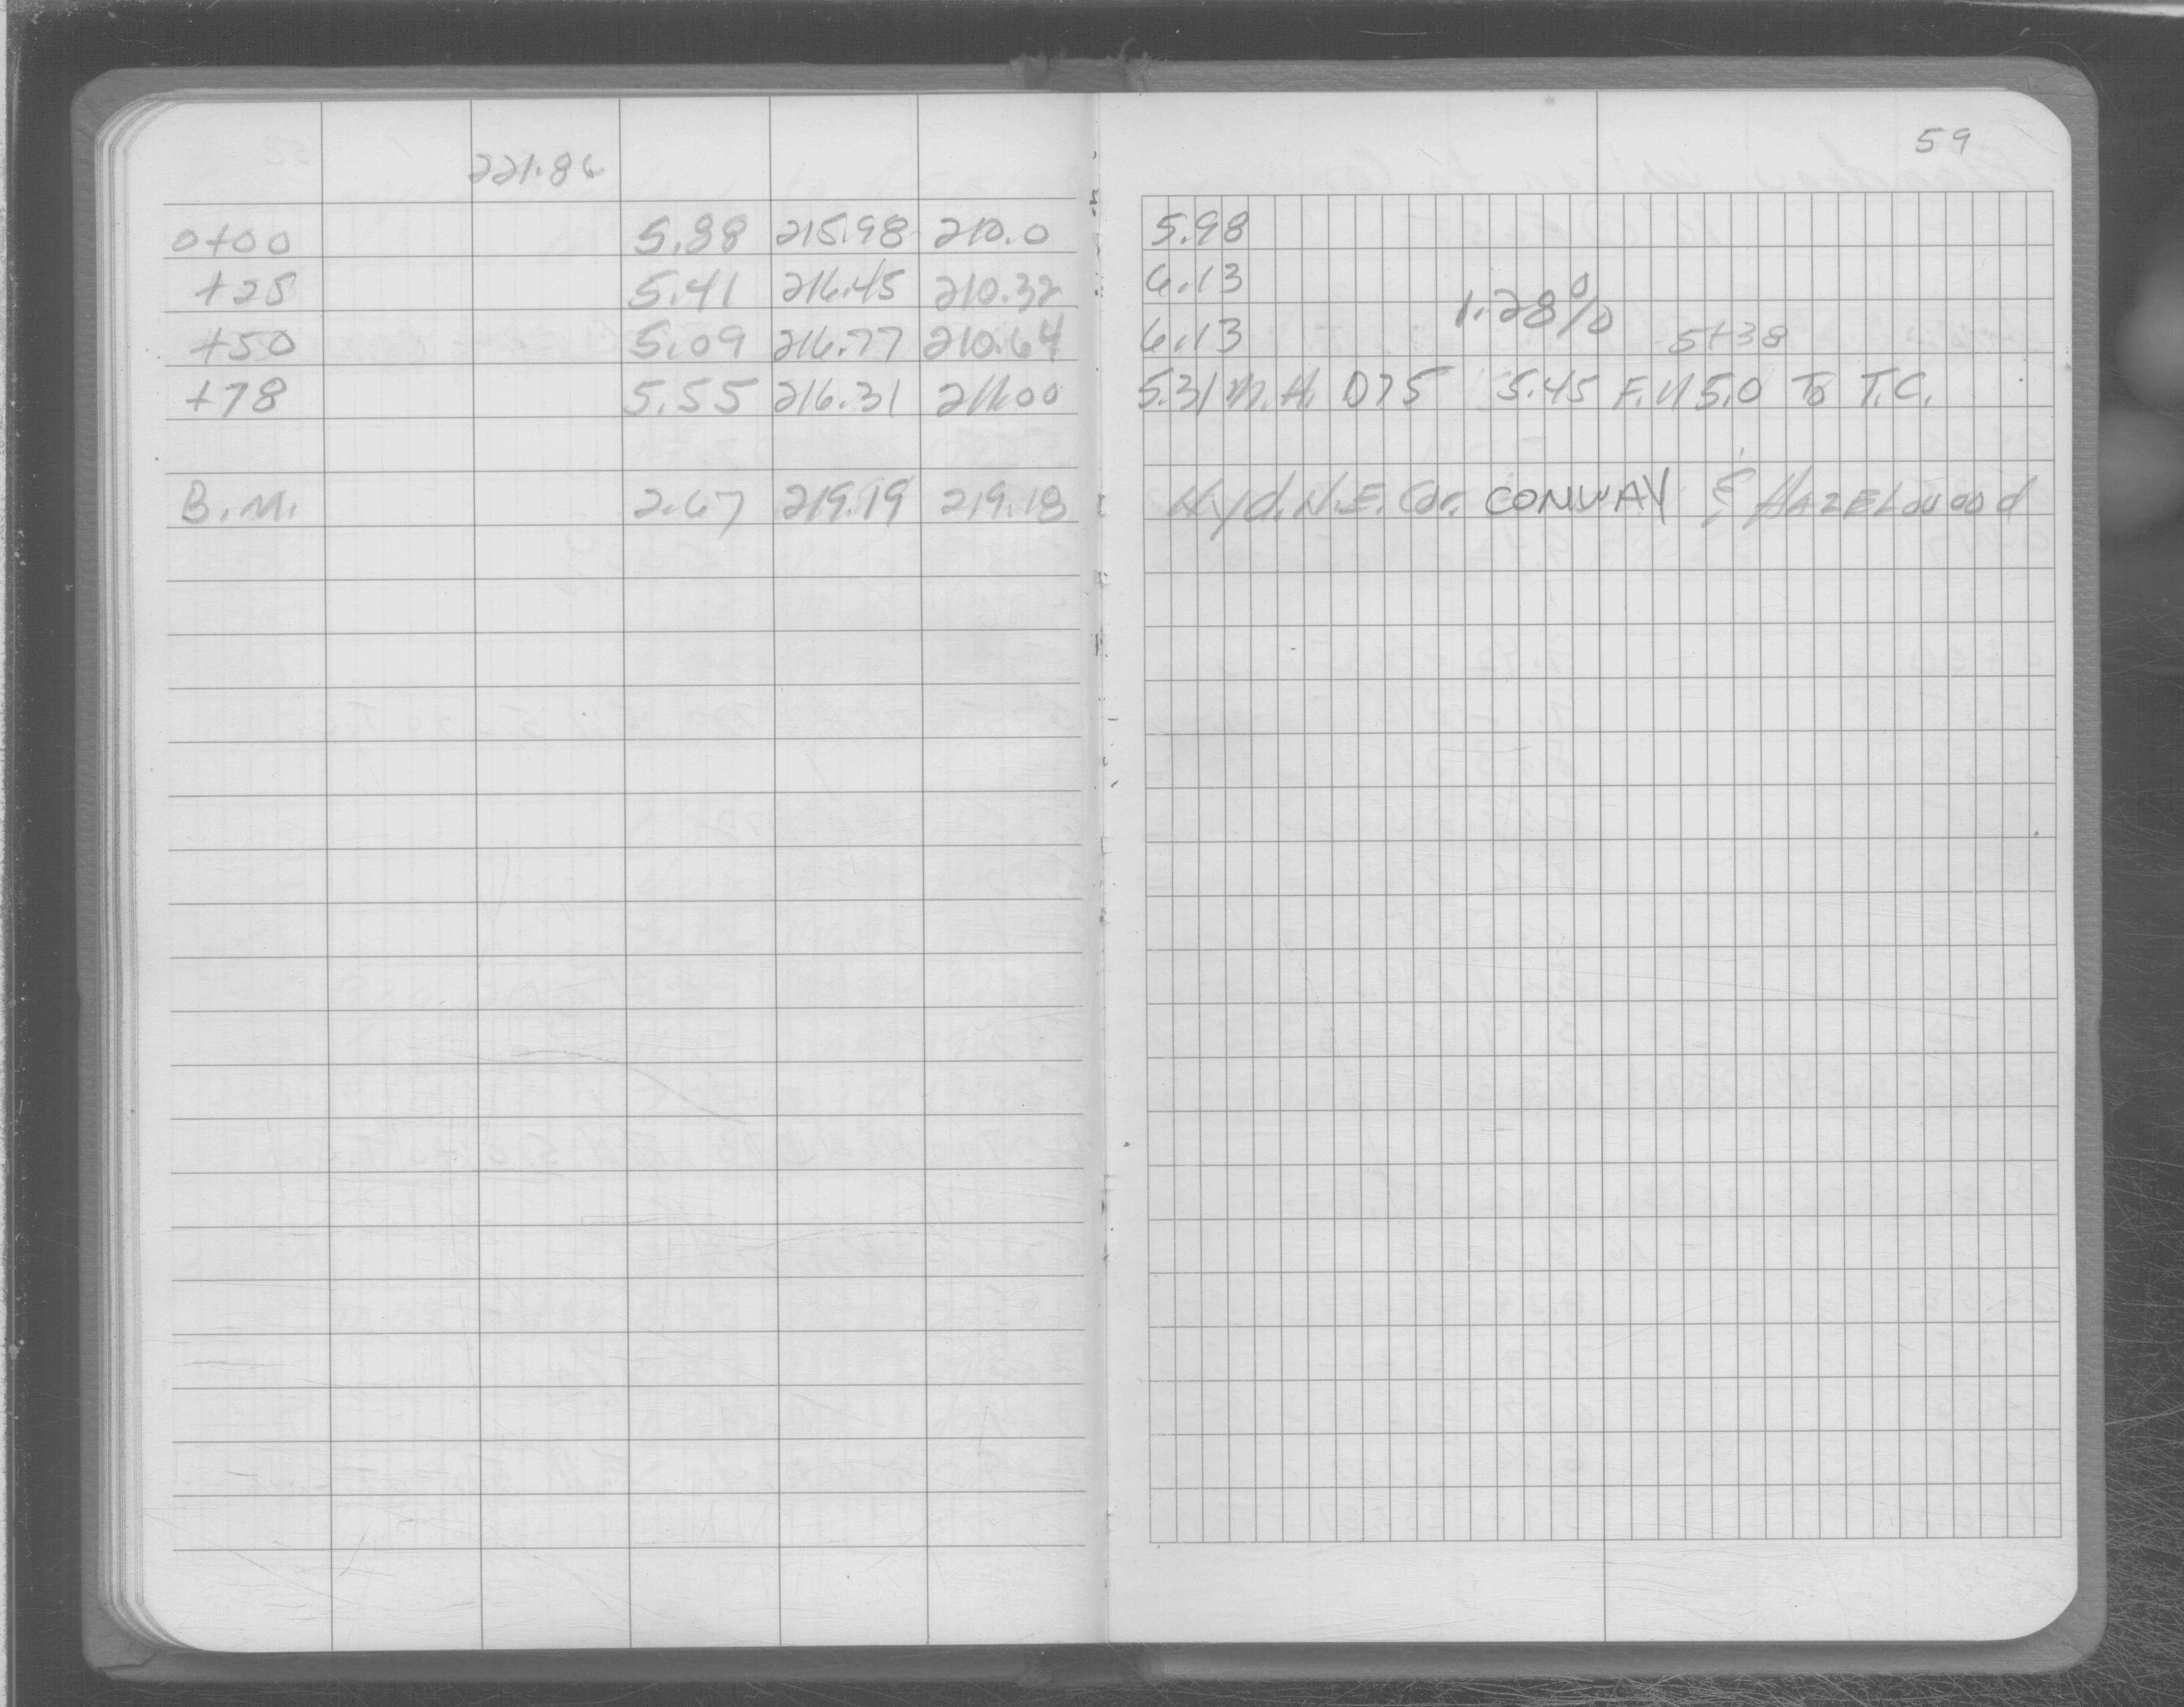 59
221.86
0+00 5.88 215.98 210.0 5.98
+25 5.41 216.45 210.32 6.13
1.28%
+50 5.09 216.77 210.64 6.13 5+38
+78 5.55 216.31 211.00 5.31 M.H. D75 5.45 F. 115.0 To T.C.
B.M. 2.67 219.19 219.18 Hyd. N.E. Cor. CONWAY & HAZELWOOD